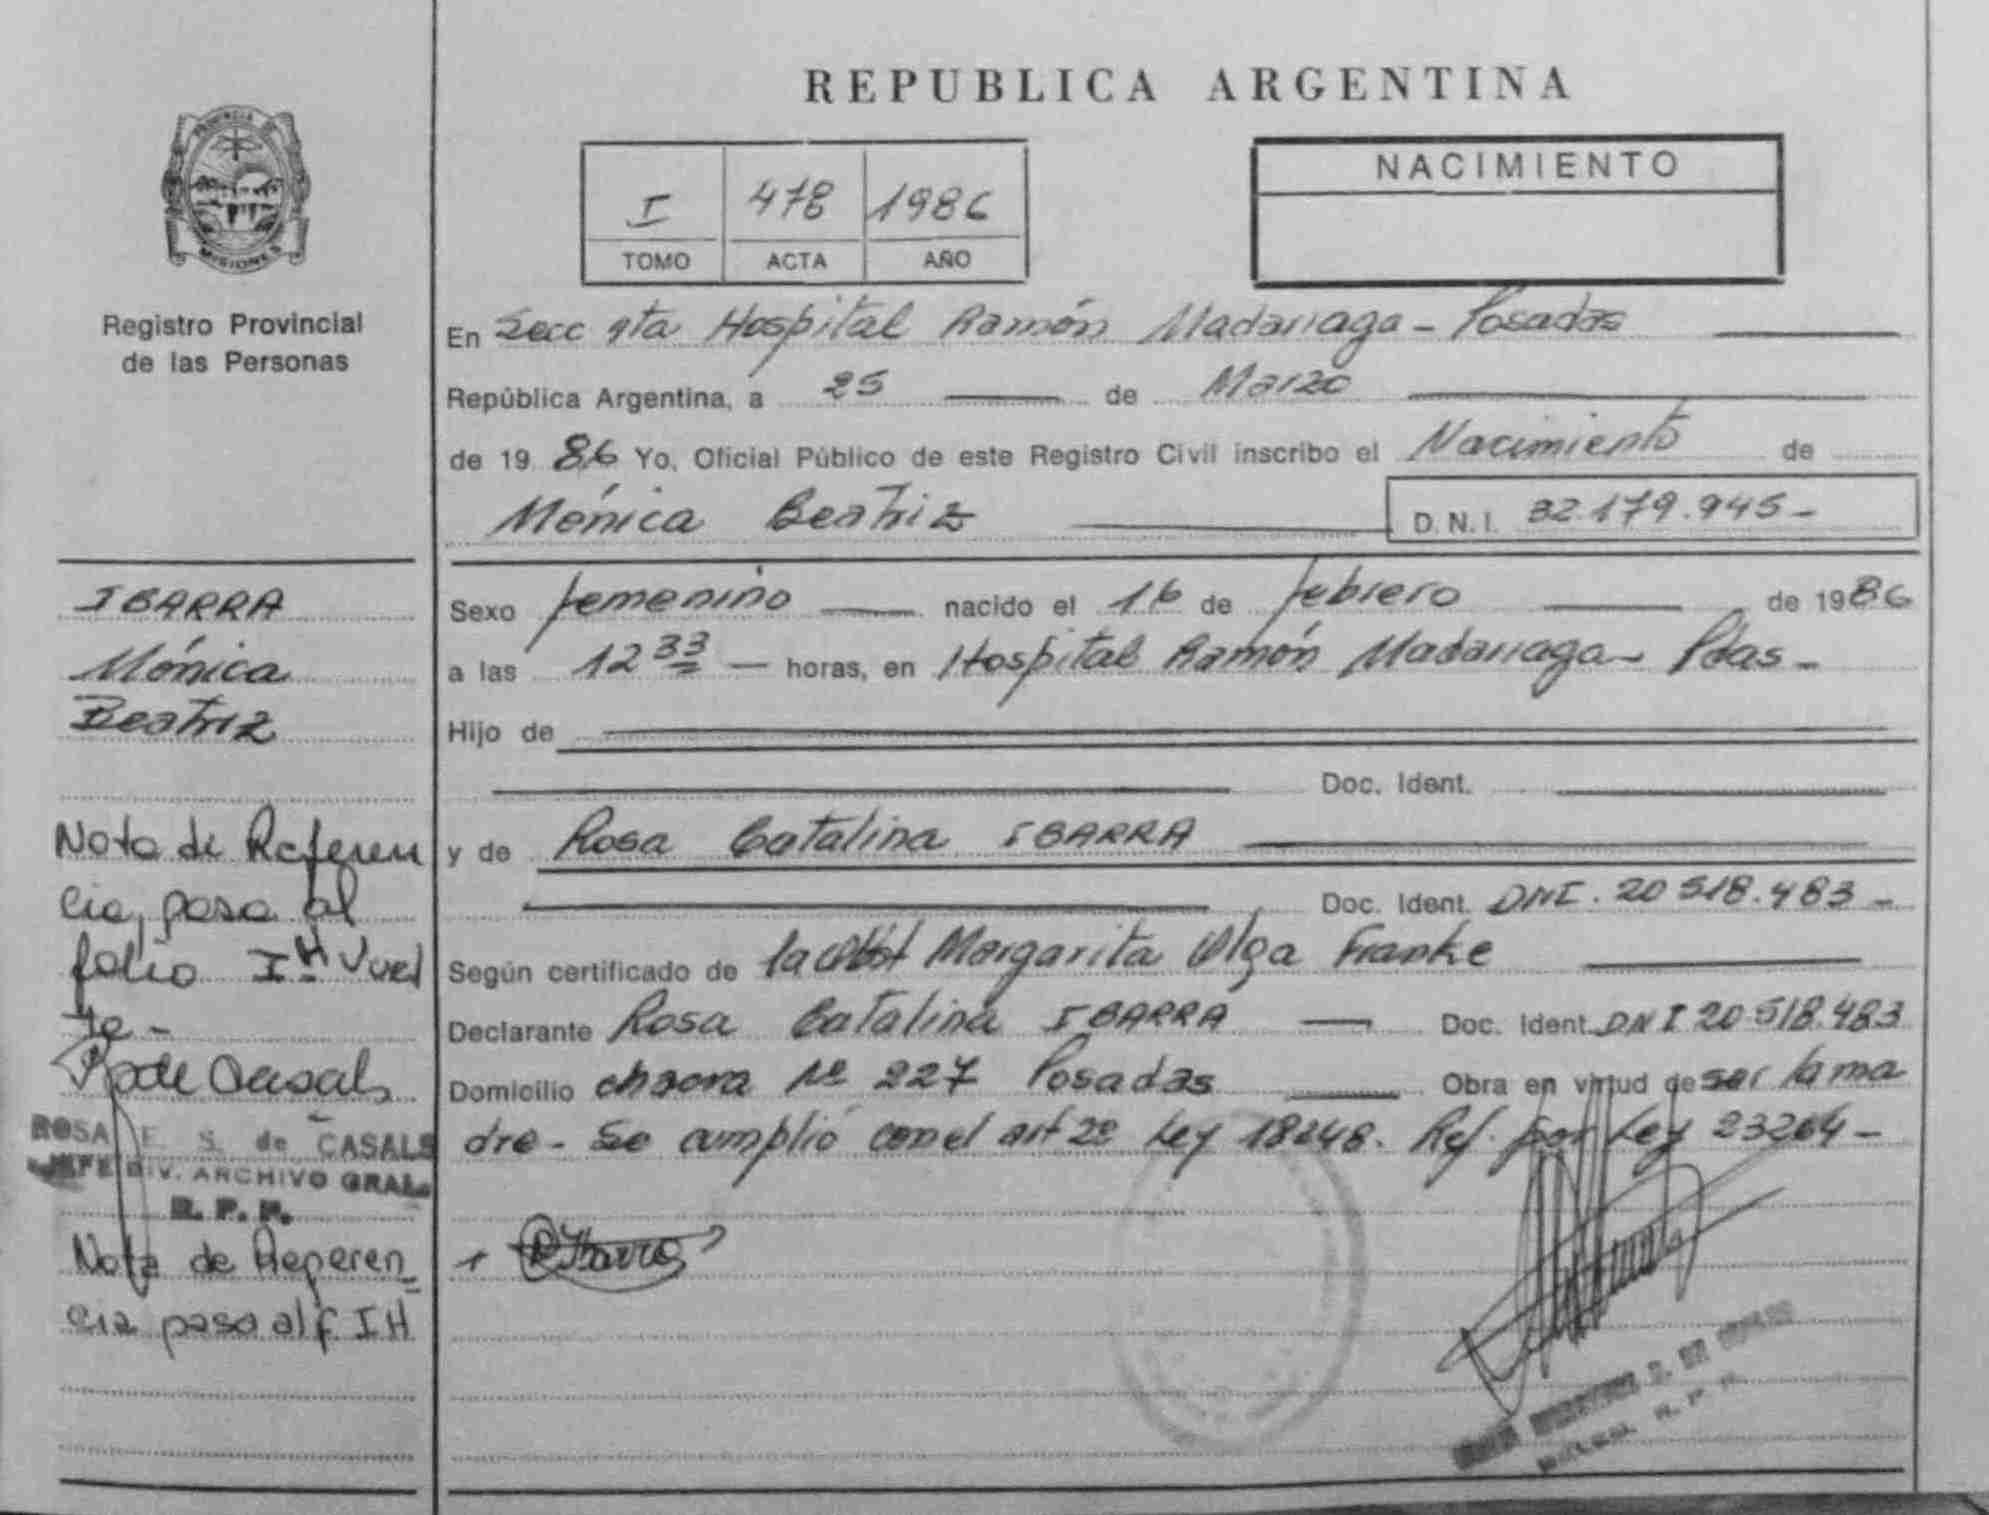 REPUBLICA ARGENTINA
PROVINCIA DE
MISIONES
Registro Provincial
de las Personas
I 478 1986
TOMO ACTA AÑO
NACIMIENTO
En Secc 9ta Hospital Ramón Madariaga - Posadas
República Argentina, a 25 de Marzo
de 1986 Yo, Oficial Público de este Registro Civil inscribo el Nacimiento de
Mónica Beatriz D.N.I. 32.179.945-
IBARRA
Mónica
Beatriz
Nota de Referen
cia, pasa al
folio I H Vuel
ta -
R de Casals
ROSA E. S. de CASALS
JEFE DIV. ARCHIVO GRAL.
R. P. P.
Nota de Referen_
cia pasa al f. IH
Sexo femenino nacido el 16 de febrero de 1986
a las 12 33 horas, en Hospital Ramón Madariaga - Pdas -
Hijo de
Doc. Ident.
y de Rosa Catalina IBARRA
Doc. Ident. DNI. 20 518.483 -
Según certificado de la Obst Margarita Olga Franke
Declarante Rosa Catalina IBARRA Doc. Ident. DNI 20 518.483
Domicilio chacra Nº 227 Posadas Obra en virtud de ser la ma
dre - Se cumplió con el art 2º Ley 18248. Ref. por Ley 23264 -
R Ibarra
R. P. P.